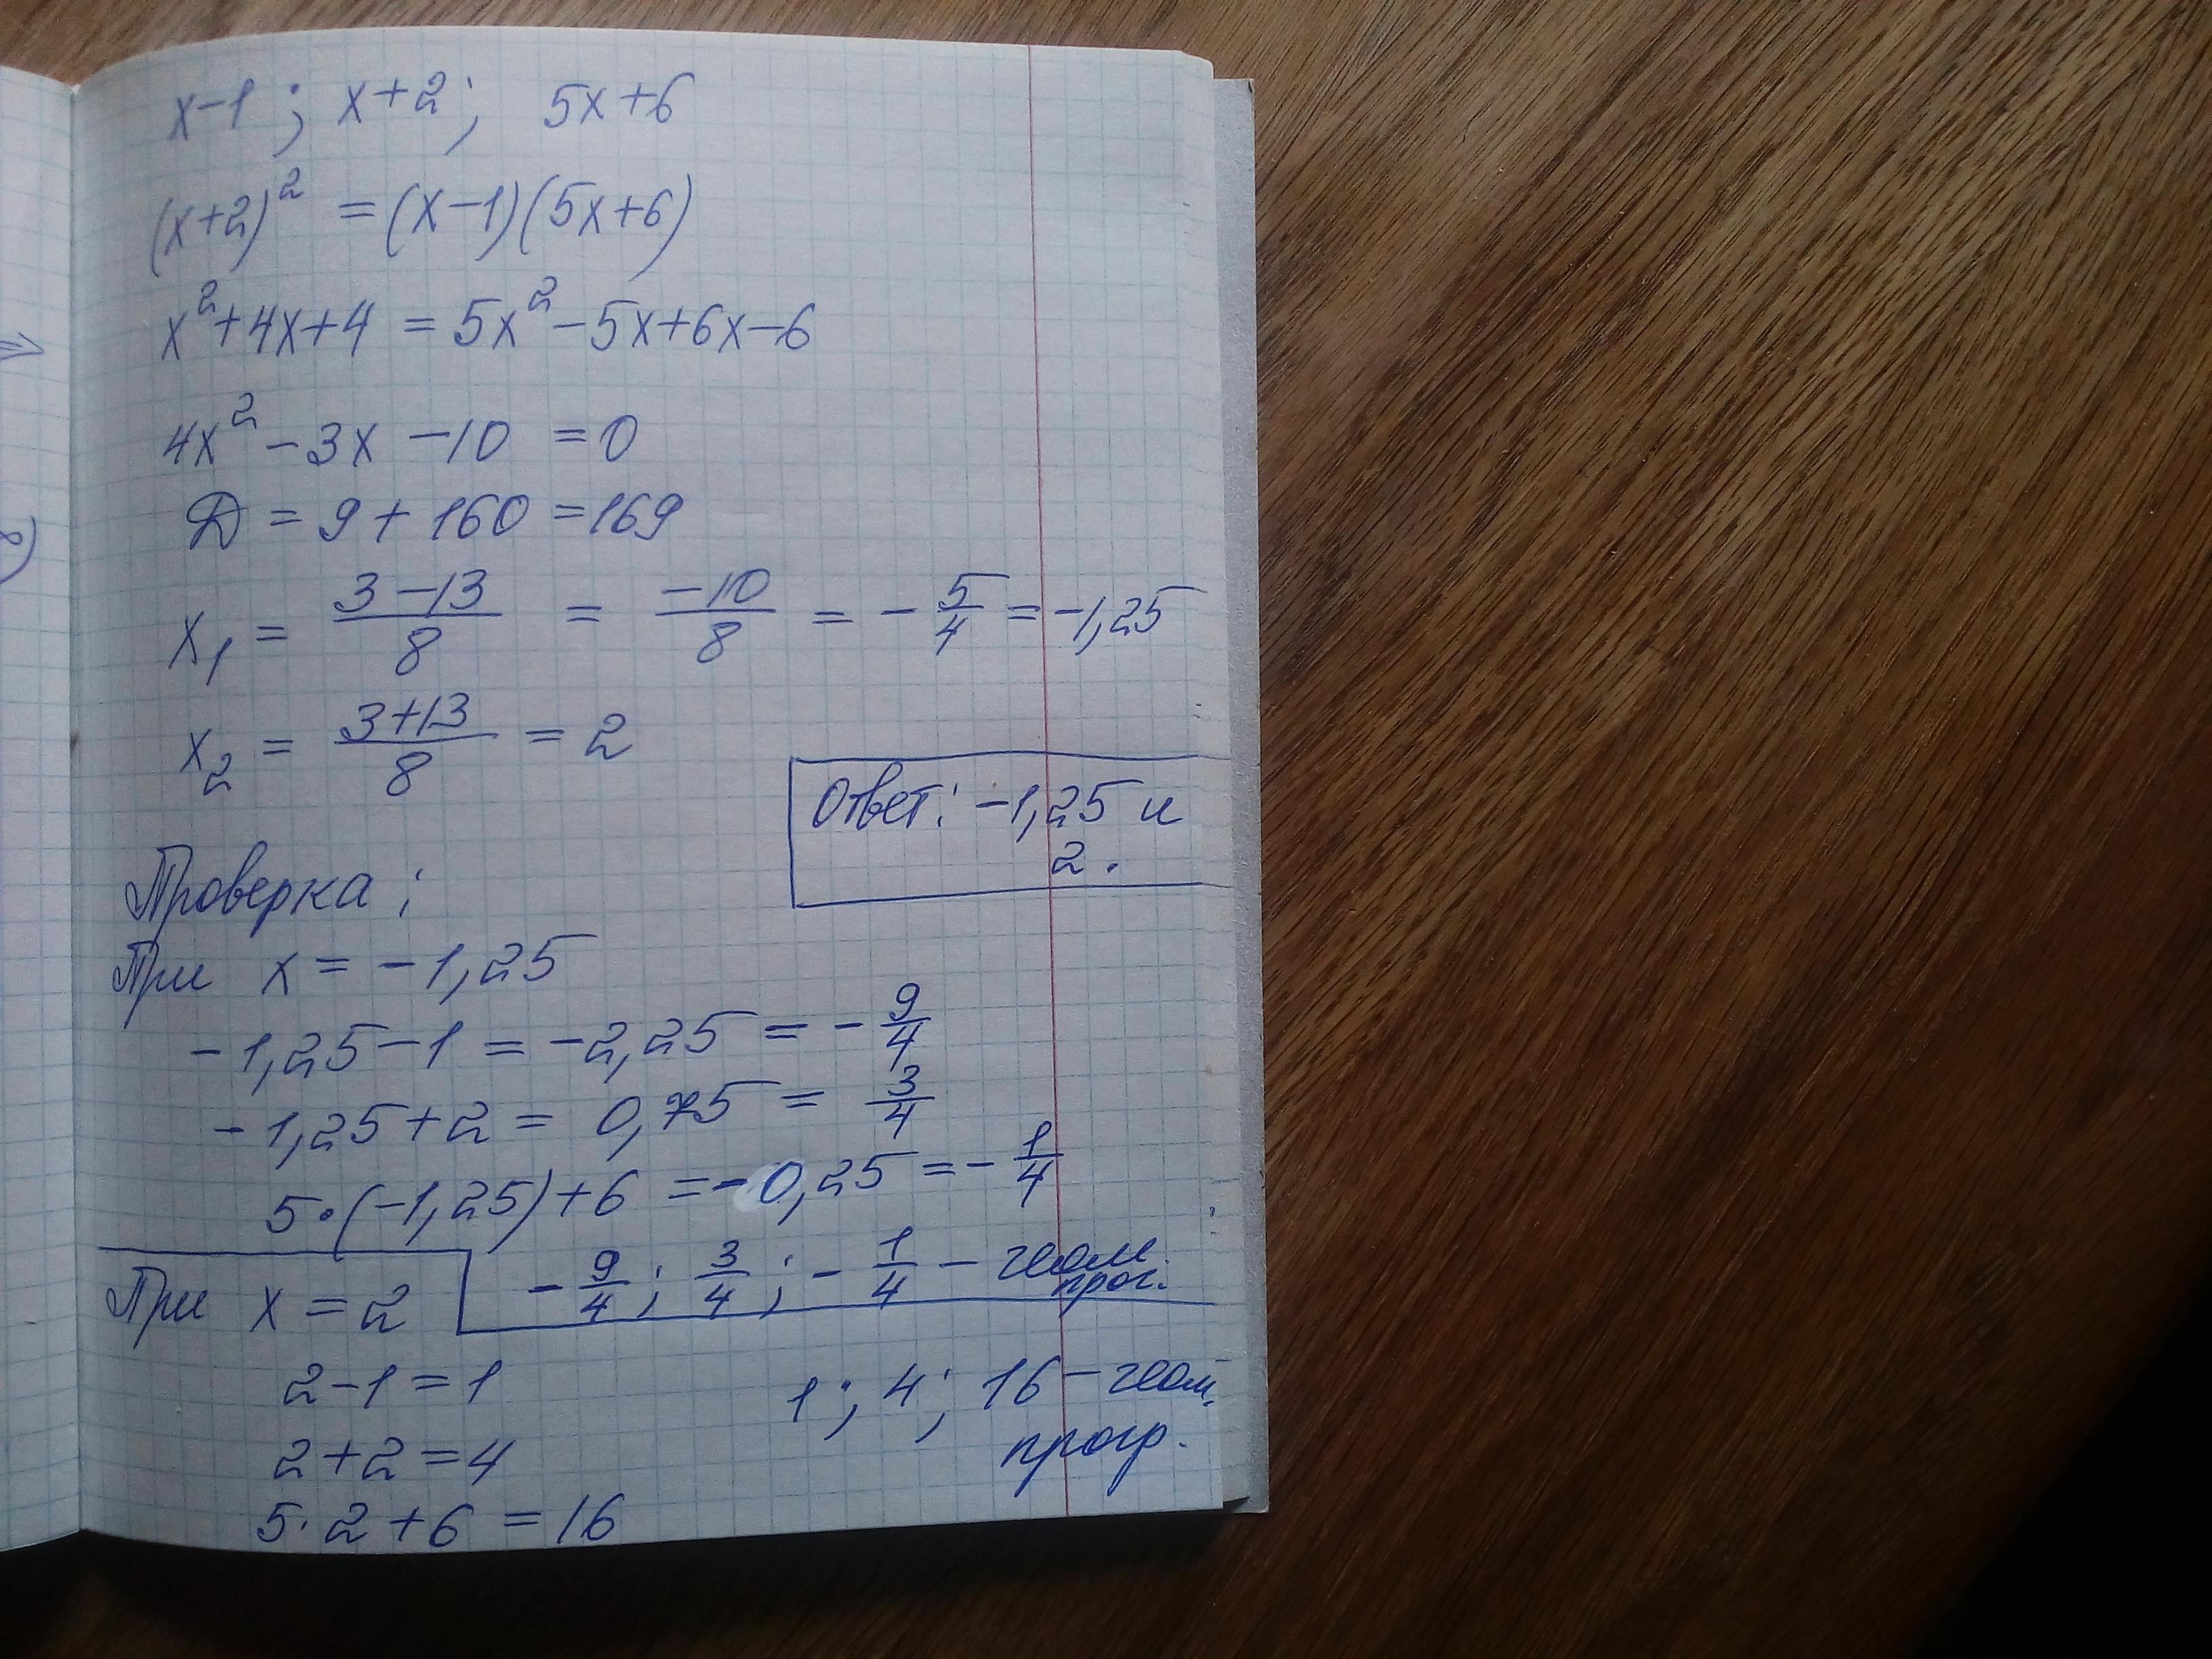 x-1; x+2; 5x+6
(x+2)² = (x-1)(5x+6)
x²+4x+4 = 5x²-5x+6x-6
4x²-3x-10 = 0
Д = 9 + 160 = 169
x₁ = (3-13)/8 = -10/8 = -5/4 = -1,25
x₂ = (3+13)/8 = 2
Ответ: -1,25 и
2.
Проверка:
При x = -1,25
-1,25-1 = -2,25 = -9/4
-1,25+2 = 0,75 = 3/4
5·(-1,25)+6 = -0,25 = -1/4
-9/4; 3/4; -1/4 - геом.
прог.
При x = 2
2-1 = 1
1; 4; 16 - геом.
прогр.
2+2 = 4
5·2+6 = 16